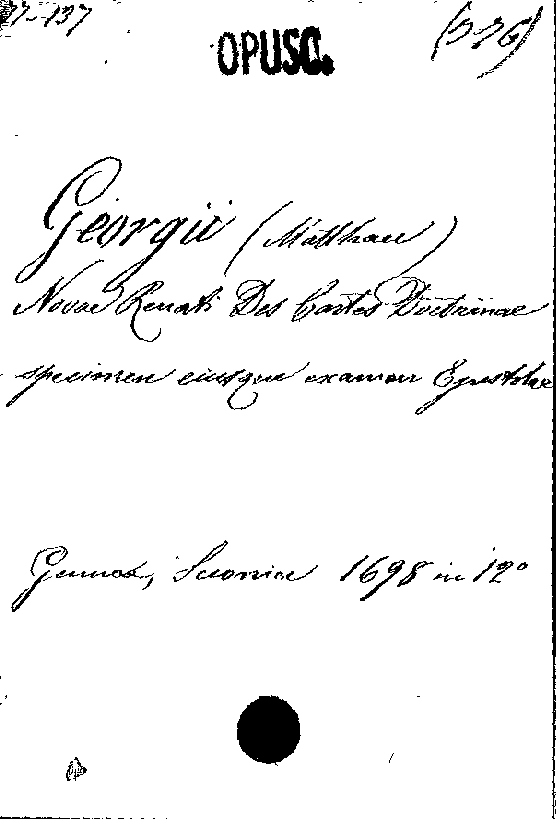 7-137
(336)
OPUSC.
Georgii (Matthaei)
Novae Renati Des Cartes Doctrinae
specimen eiusque examen Epistolae
Genuae, Scionica 1698 in 12º